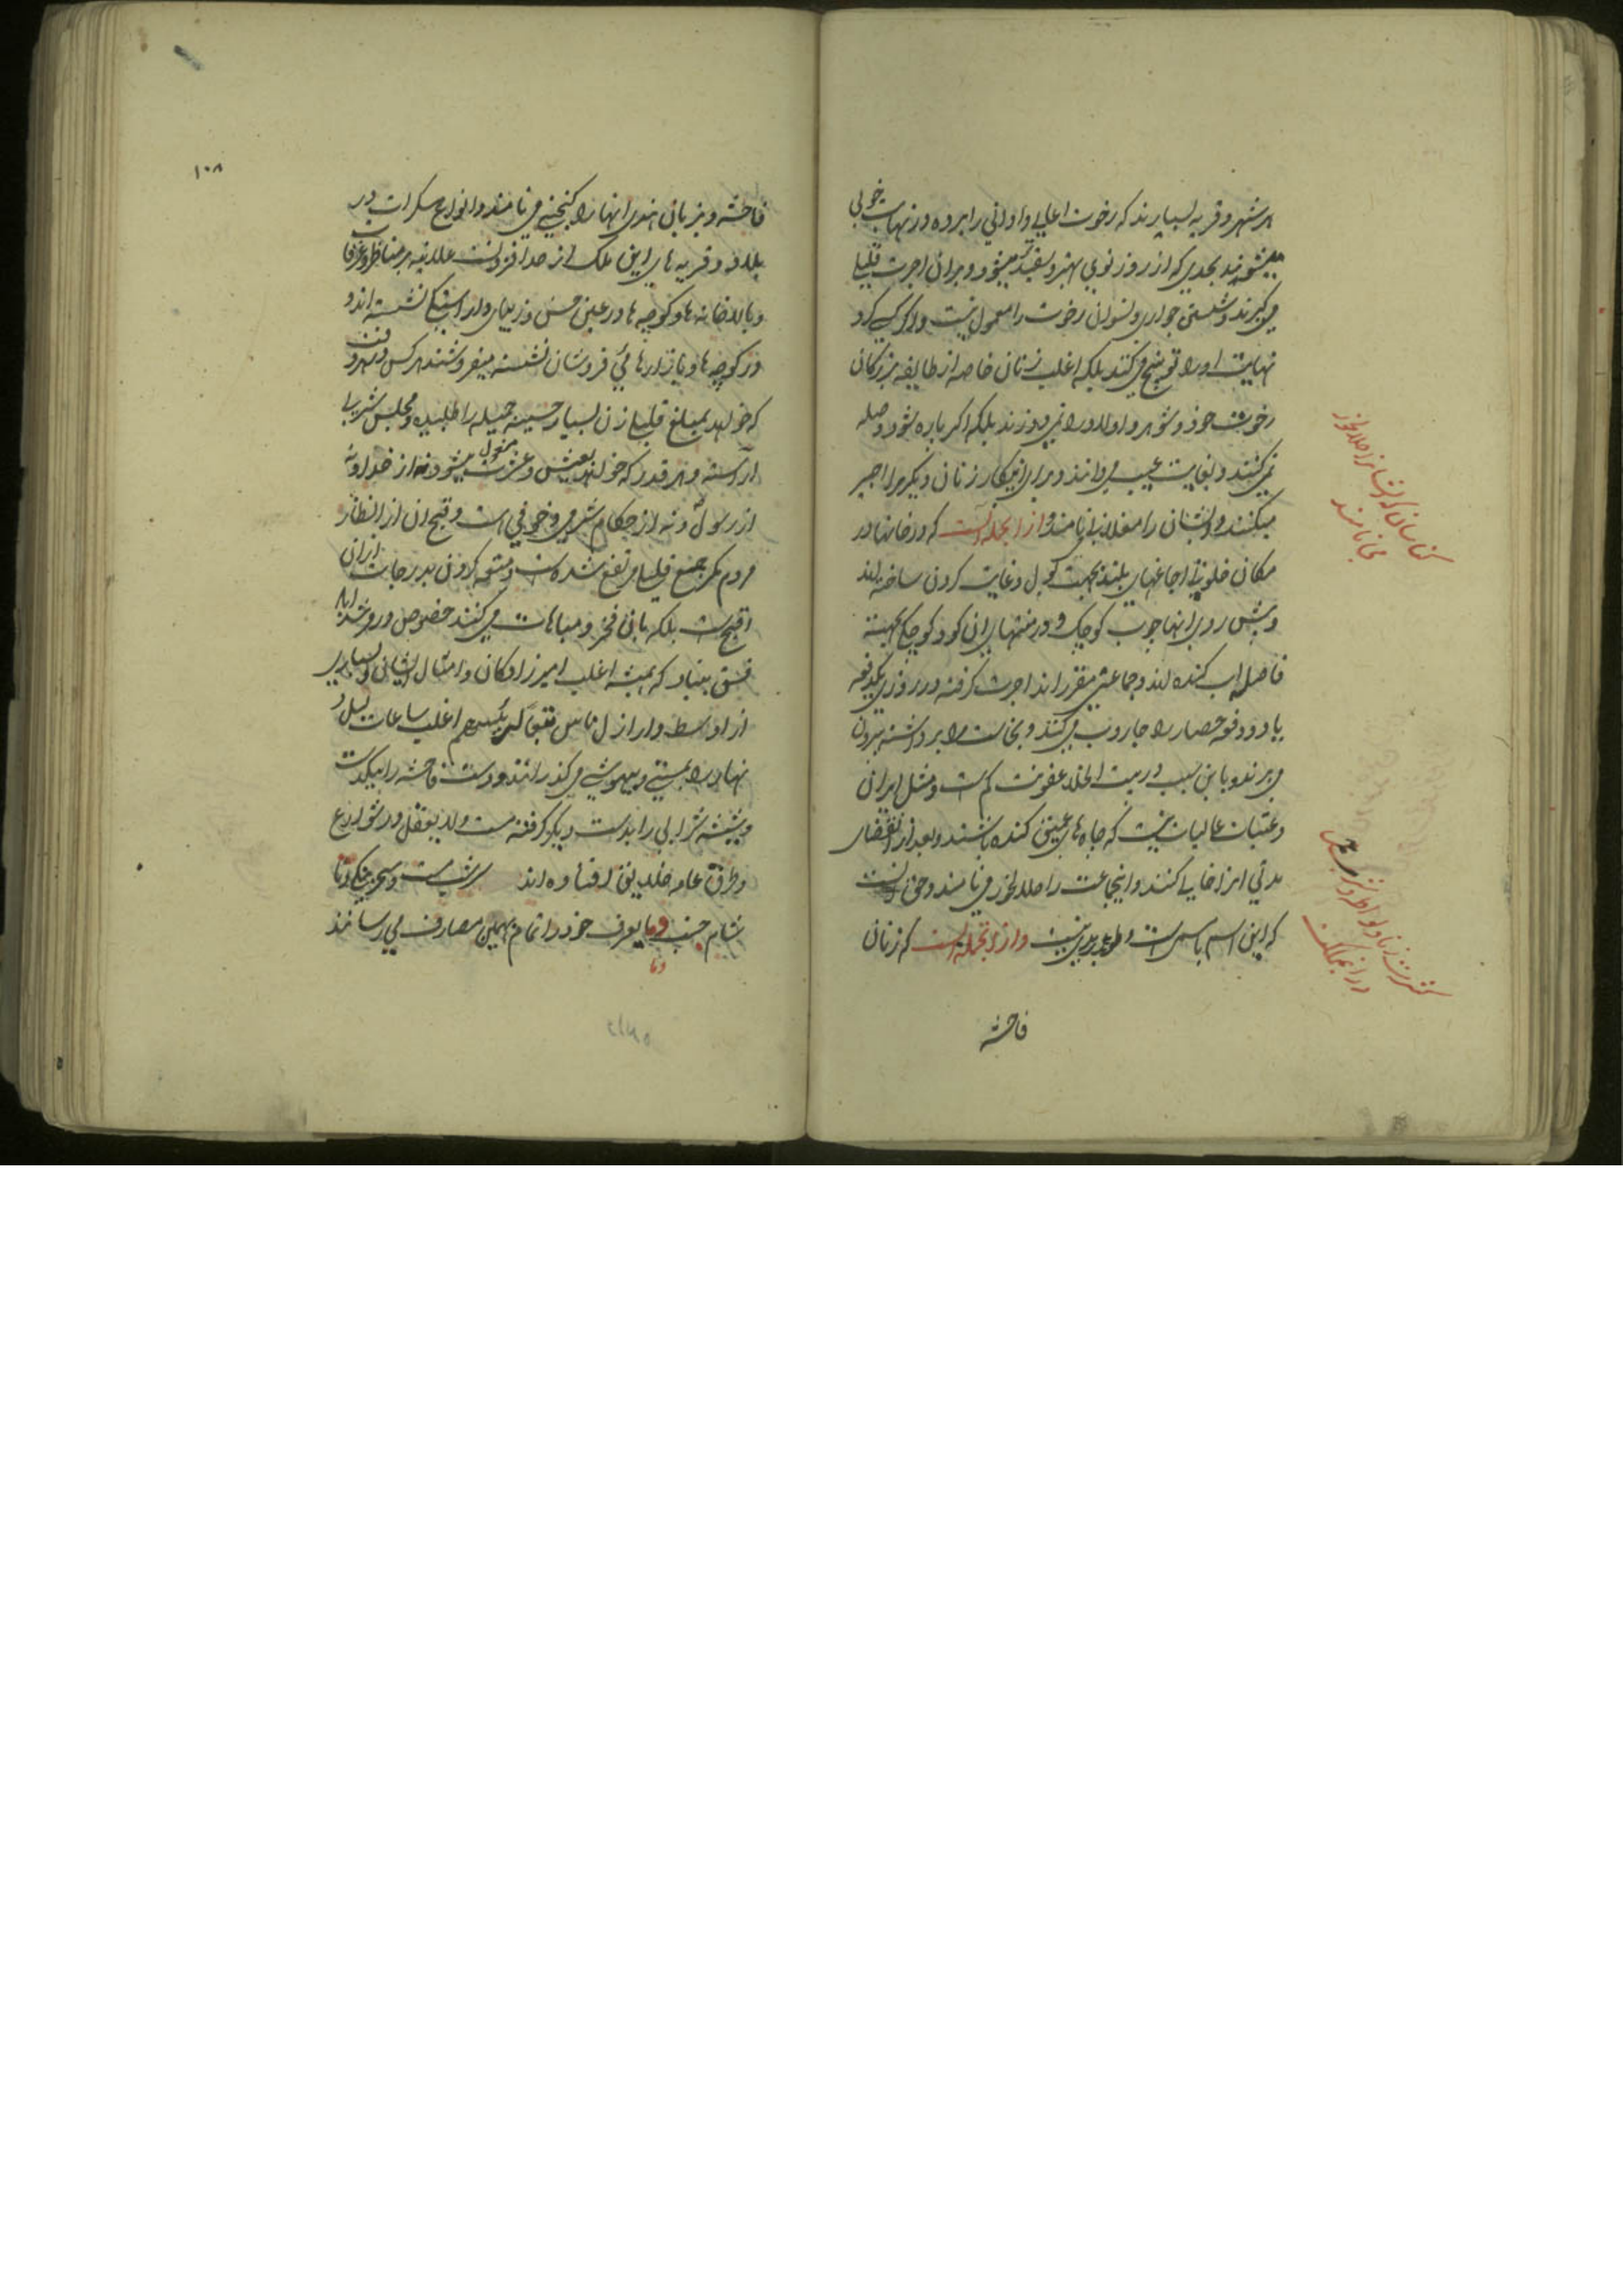 هر شهر و قریه بسیارند که رخوت اعالی و ادانی را برده در نهایت خوبی
میشویند بحدی که از روز نوی بهتر و سفیدتر میشود و برای اجرت قلیلی
می‌گیرند و شستن جواری و نسوان رخوت را معمول نیست و اگر کسی کرد
نهایت او را توبیخ می‌کنند بلکه اغلب زنان خاصه از طایفه بزرگان
رخوت خود و شوهر و اولاد را نمی‌دوزند بلکه اگر پاره بشود وصله
نمی‌کنند و بغایت عیب می‌دانند و برای اینکار زنان دیگر را اجیر
میکنند و ایشان را مغلانی نامند و از انجمله آنست که در خانها در
مکان خلوتی اجاغهای بلند بجهت بول و غایت کردن ساخته‌اند
و پیش روی انها چوب کوچک و در منتهای ان کود کوچکی بجهته
فاضله اب کنده‌اند و جماعتی مقرراند اجرت گرفته در روزی یکدفعه
یا دو دفعه حصار را جاروب می‌کنند و نجاست را برداشته بیرون
می‌برند و باین سبب در بیت الخلا عفونت کم است و مثل ایران
و عتبات عالیات نیست که چاه های عمیق کنده باشند و بعد از انقضای
مدتی انرا خالی کنند و اینجماعت را حلالخور می‌نامند و حق انست
که این اسم با مسمی است و از انجمله است که زنان
فاحشه
کناسان که ایشانرا حلالخور
می نامند
کثرت زنا و لواطه و شرب خمر
در انمملکت
۱۰۸
فاحشه و بزبان هندی انها را کنچنی می‌نامند و انواع مسکرات در
بلاد و قریه های این ملک از حد افزونست علانیه بر مناظر و غرفات
و بالاخانه ها و کوچه ها در عین حسن و زیبای نشسته‌اند و
در کوچه ها و بازارها می فروشان نشسته میفروشند هر کس هر وقت
که خواهد بمبلغ قلیلی زن بسیار حسینه جمیله را طلبیده و مجلس شراب
اراسته و هر قدر که خواهد بعیش و عشرت مشغول میشود نه از خدا و نه
از رسول و نه از حکام شرمی و خوفی است و قبح ان از انظار
مردم مگر جمع قلیلی مرتفع شده است و متعه کردن بدرجات از ان
اقبح است بلکه بان فخر و مباهات می‌کنند خصوص در مرشداباد
فسق بنیاد که همیشه اغلب امیرزادگان و امثال ایشان و بسیاری
از اواسط و اراذل ناس اغلب ساعات لیل و
نهار را بمستی و بیهوشی می‌گذرانند و دست فاحشه را بیکدست
و شیشه شرابی را بدست دیگر گرفته مست و لایعقل در شوارع
و طرق عامه خلایق افتاده‌اند
خود را تمام بهمین مصارف می رسانند
وبا